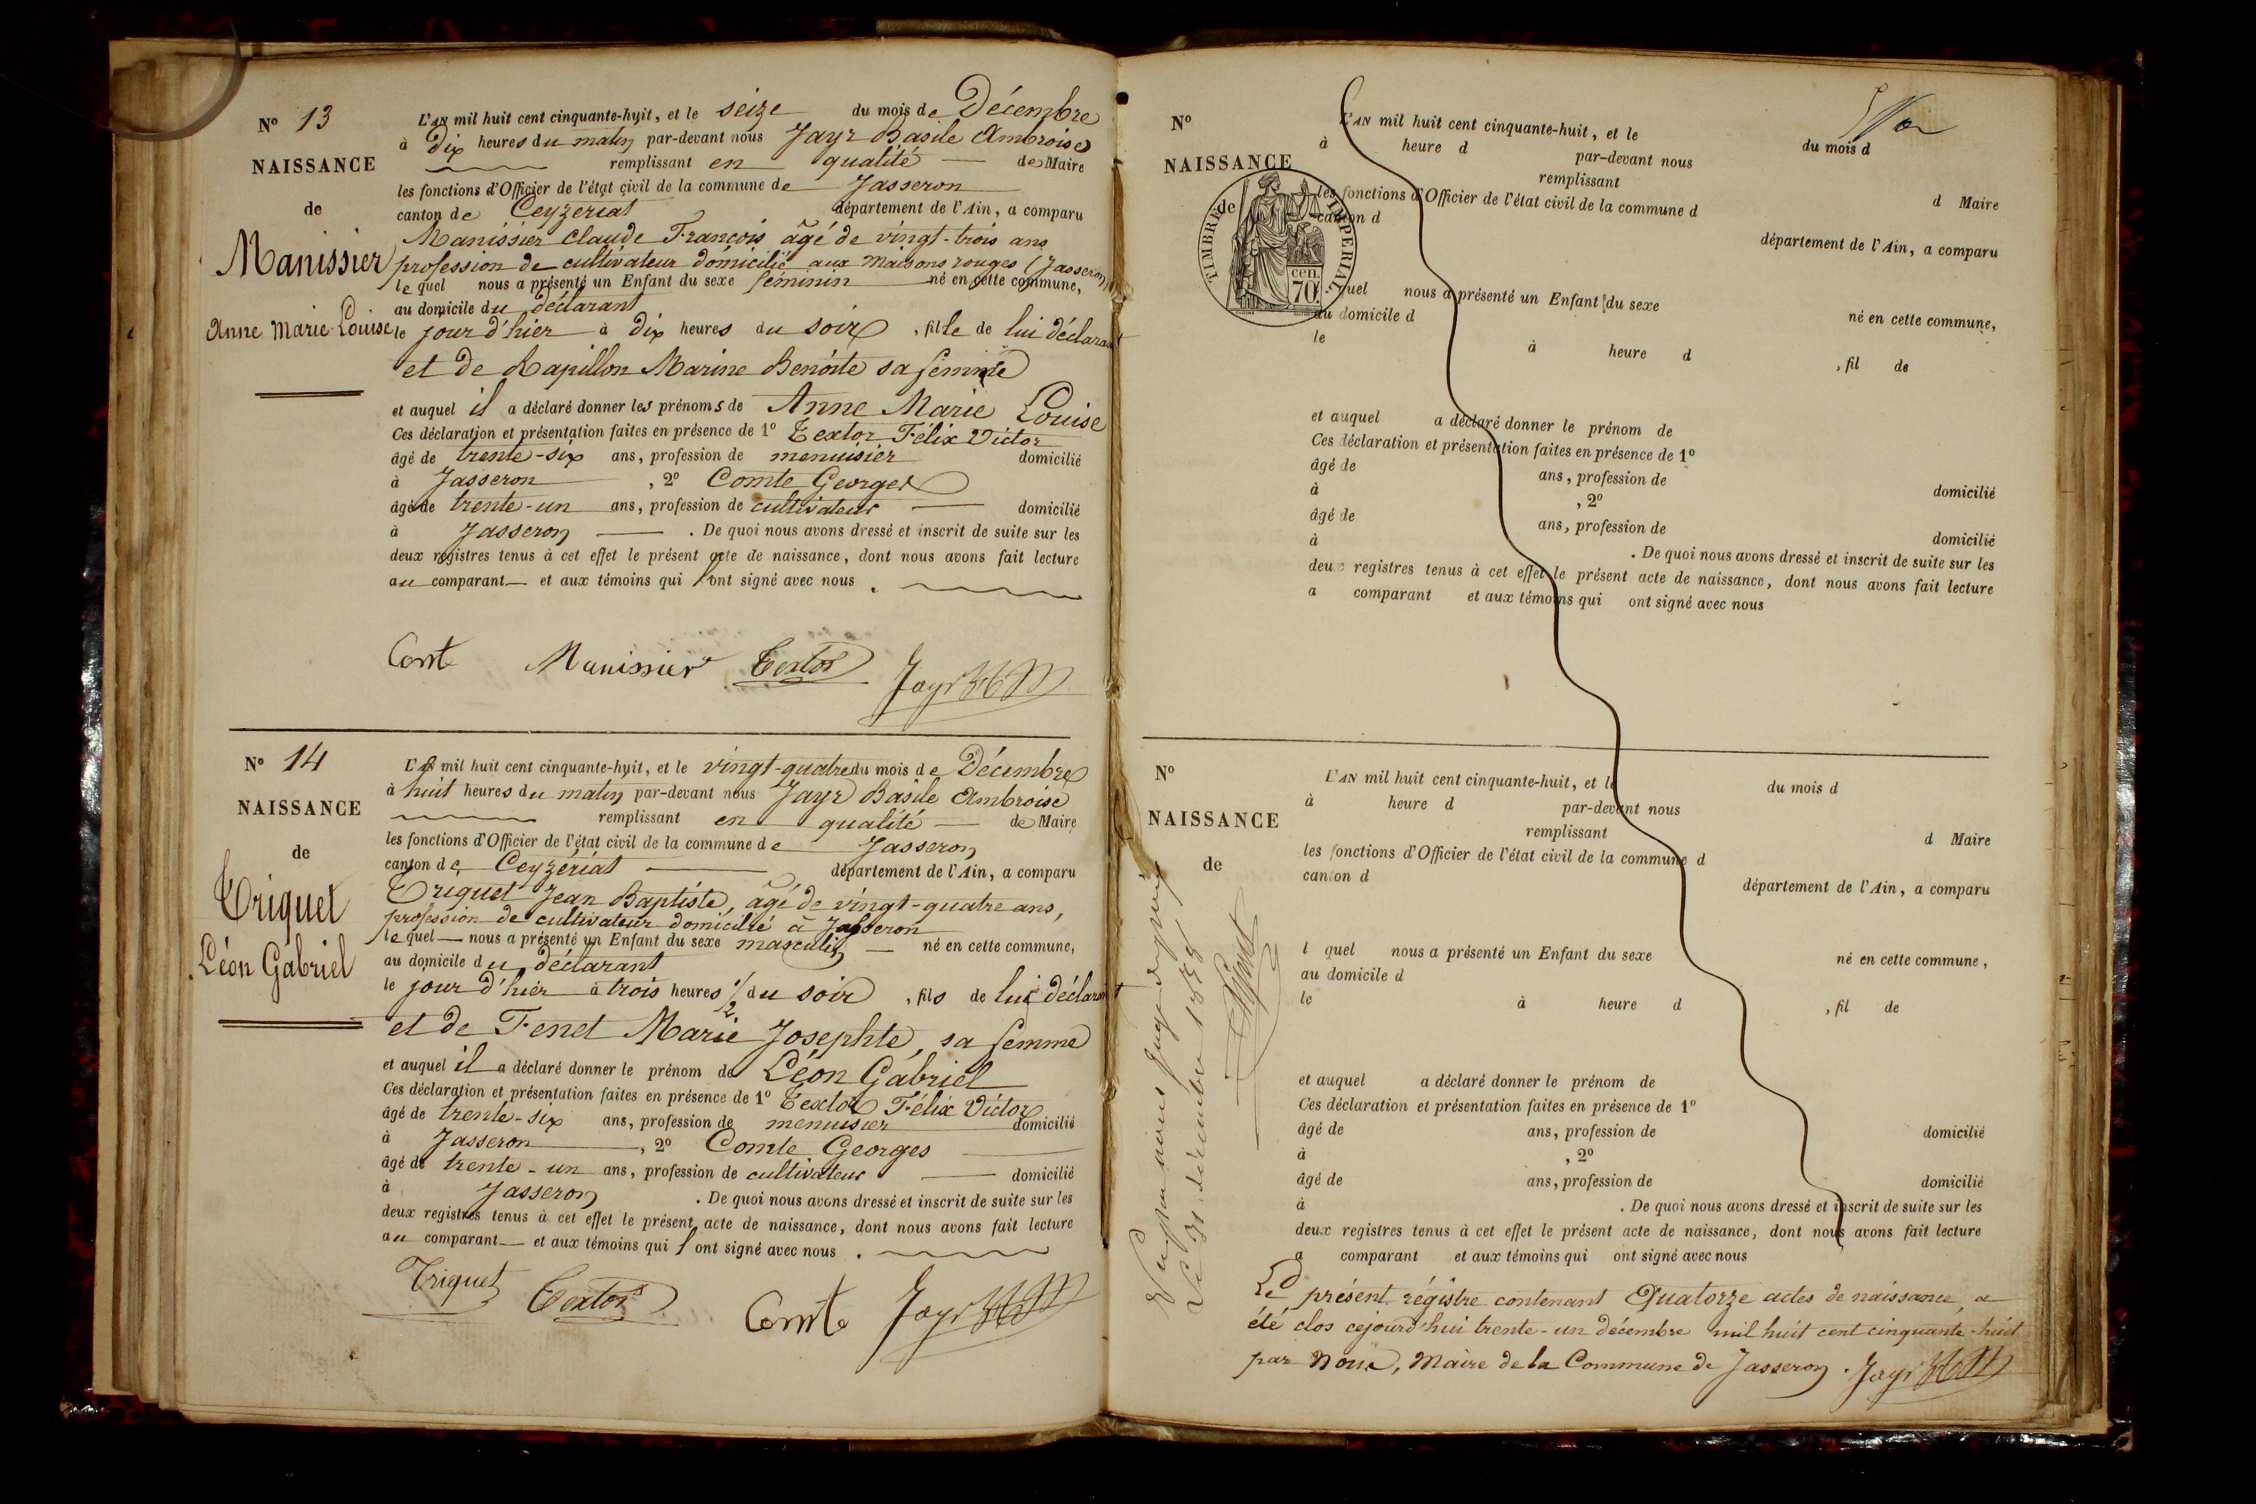 N° 13
NAISSANCE
de
Manissier
Anne Marie Louise
L'AN mil huit cent cinquante-huit, et le seize du mois de Décembre
à Dix heures du matin par-devant nous Jayr Basile Ambroise
remplissant en qualité de Maire
les fonctions d'Officier de l'état civil de la commune de Jasseron
canton de Ceyzériat département de l'Ain, a comparu
Manissier Claude François âgé de vingt-trois ans
profession de cultivateur domicilié aux maisons rouges (Jasseron)
lequel nous a présenté un Enfant du sexe féminin né en cette commune,
au domicile du déclarant
le jour d'hier à dix heures du soir, fille de lui déclarant
et de Rapillon Marine Benoite sa femme
et auquel il a déclaré donner les prénoms de Anne Marie Louise
Ces déclaration et présentation faites en présence de 1° Textor Félix Victor
âgé de trente-six ans, profession de menuisier domicilié
à Jasseron, 2° Comte Georges
âgé de trente-un ans, profession de cultivateur domicilié
à Jasseron. De quoi nous avons dressé et inscrit de suite sur les
deux registres tenus à cet effet le présent acte de naissance, dont nous avons fait lecture
au comparant et aux témoins qui l'ont signé avec nous.
Comte Manissier Textor Jayr
N° 14
NAISSANCE
de
Triquet
Léon Gabriel
L'AN mil huit cent cinquante-huit, et le vingt-quatre du mois de Décembre
à huit heures du matin par-devant nous Jayr Basile Ambroise
remplissant en qualité de Maire
les fonctions d'Officier de l'état civil de la commune de Jasseron
canton de Ceyzériat département de l'Ain, a comparu
Triquet Jean Baptiste, âgé de vingt-quatre ans,
profession de cultivateur domicilié à Jasseron
lequel nous a présenté un Enfant du sexe masculin né en cette commune,
au domicile du déclarant
le jour d'hier à trois heures 1/2 du soir, fils de lui déclarant
et de Fenet Marie Josephte, sa femme
et auquel il a déclaré donner le prénom de Léon Gabriel
Ces déclaration et présentation faites en présence de 1° Textor Félix Victor
âgé de trente-six ans, profession de menuisier domicilié
à Jasseron, 2° Comte Georges
âgé de trente-un ans, profession de cultivateur domicilié
à Jasseron. De quoi nous avons dressé et inscrit de suite sur les
deux registres tenus à cet effet le présent acte de naissance, dont nous avons fait lecture
au comparant et aux témoins qui l'ont signé avec nous.
Triquet Textor Comte Jayr
N°
NAISSANCE
de
TIMBRE IMPERIAL
cen.
70
L'AN mil huit cent cinquante-huit, et le du mois d
à heure d par-devant nous
remplissant d Maire
les fonctions d'Officier de l'état civil de la commune d
canton d département de l'Ain, a comparu
l quel nous a présenté un Enfant du sexe né en cette commune,
au domicile d
le à heure d, fil de
et auquel a déclaré donner le prénom de
Ces déclaration et présentation faites en présence de 1°
âgé de ans, profession de domicilié
à, 2°
âgé de ans, profession de domicilié
à. De quoi nous avons dressé et inscrit de suite sur les
deux registres tenus à cet effet le présent acte de naissance, dont nous avons fait lecture
a comparant et aux témoins qui ont signé avec nous
N°
NAISSANCE
de
L'AN mil huit cent cinquante-huit, et le du mois d
à heure d par-devant nous
remplissant d Maire
les fonctions d'Officier de l'état civil de la commune d
canton d département de l'Ain, a comparu
l quel nous a présenté un Enfant du sexe né en cette commune,
au domicile d
le à heure d, fil de
et auquel a déclaré donner le prénom de
Ces déclaration et présentation faites en présence de 1°
âgé de ans, profession de domicilié
à, 2°
âgé de ans, profession de domicilié
à. De quoi nous avons dressé et inscrit de suite sur les
deux registres tenus à cet effet le présent acte de naissance, dont nous avons fait lecture
a comparant et aux témoins qui ont signé avec nous
Le présent régistre contenant Quatorze actes de naissance, a
été clos cejourd'hui trente-un décembre mil huit cent cinquante-huit
par Nous, Maire de la Commune de Jasseron. Jayr
Vu par nous juge de paix
Le 31 décembre 1858